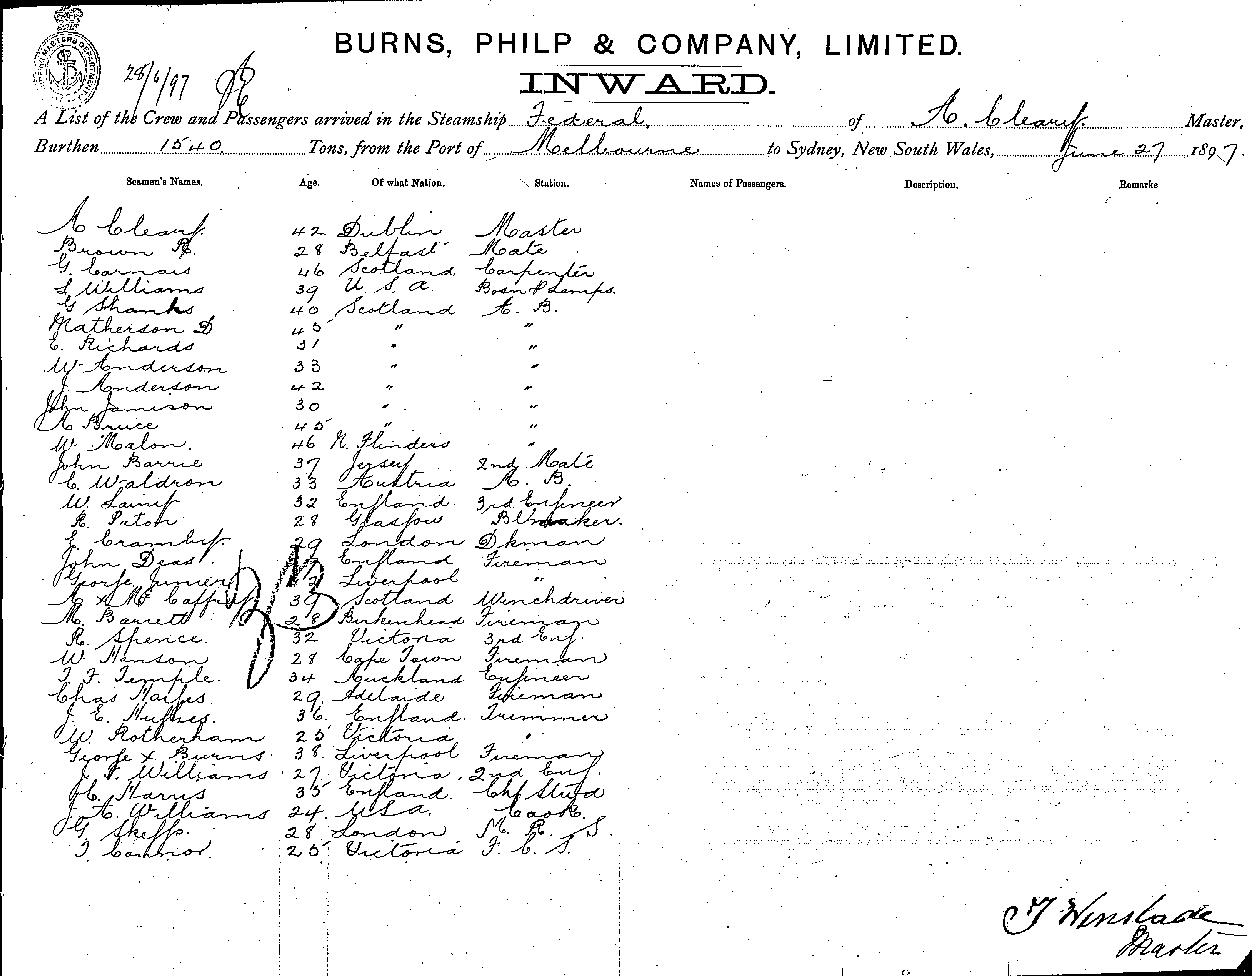 BURNS, PHILP & COMPANY, LIMITED.
28/6/97
INWARD.
A List of the Crew and Passengers arrived in the Steamship Federal, of A. Cleary Master,
Burthen 1540 Tons, from the Port of Melbourne to Sydney, New South Wales, June 27 1897.
Seamen's Names. Age. Of what Nation. Station. Names of Passengers. Description. Remarks
A Cleary 42 Dublin Master
Brown R. 28 Belfast Mate
G. Carnais 46 Scotland Carpenter
L Williams 39 U. S. A. Bosn & Lamps.
G Shanks 40 Scotland A. B.
Matherson D 45 " "
E. Richards 31 " "
W Anderson 33 " "
J. Anderson 42 " "
John Jamison 30 " "
A Bruce 45 " "
W. Malon. 46 N. Flinders "
John Barrie 37 Jersey 2nd Mate
C. Waldron 33 Austria A. B.
W. Laing 32 England 3rd Engineer
R. Paton 28 Glasgow
E. Cramby. 29 London Dkman
John Deas. England Fireman
George Liverpool "
A x Mc Caffrey 39 Scotland Winchdriver
M. Barrett 28 Birkenhead Fireman
R. Spence. 32 Victoria 3rd Eng.
W. Hanson 28 Cape Town Fireman
T. F. Temple. 34 Auckland Engineer
Chas 29 Adelaide Fireman
J. E. Hughes. 36. England. Trimmer
W. Rotherham 25 Victoria "
George x Burns. 38. Liverpool Fireman
J. F. Williams 27. Victoria. 2nd Eng.
H. Harris 35 England. Chf Stwd
Jo A. Williams 24. U.S.A. Cook.
G. Skeggs. 28 London M. R. S.
T. Connor. 25 Victoria F. C. S.
T Winslade
Master